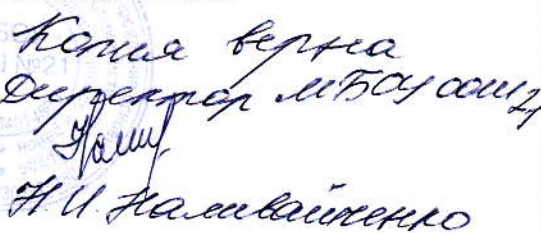 Копия верна
Директор МБОУ сош 21
Н.И. Наливайченко
№21